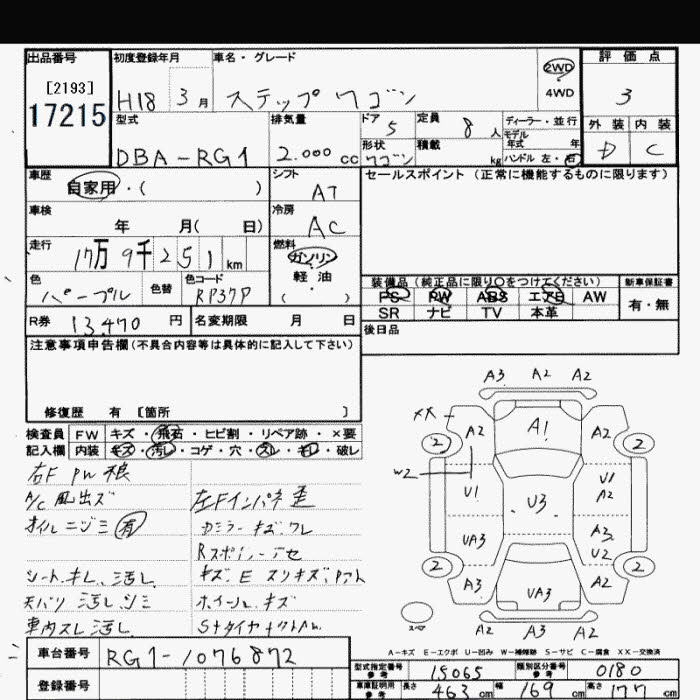 出品番号 初度登録年月 車名・グレード 評価点
[2193] 17215
H18 3月 ステップワゴン 2WD 4WD 3
型式 排気量 ドア 5 定員 8人 ディーラー・並行 外装 内装
モデル年式 年
DBA-RG1 2.000cc 形状 ワゴン 積載 kg ハンドル 左・右 D C
車歴 シフト セールスポイント(正常に機能するものに限ります)
自家用・( ) AT
車検 冷房
年 月( 日) AC
走行 燃料
17万9千251km ガソリン
軽・油
色 色替 色コード 装備品(純正品に限り○をつけてください) 新車保証書
パープル RP37P ( ) PS PW ABS エアB AW 有・無
SR ナビ TV 本革
R券 13470円 名変期限 月 日 後日品
注意事項申告欄(不具合内容等は具体的に記入して下さい)
修復歴 有 [箇所 ]
検査員 FW キズ・飛石・ヒビ割・リペア跡・×要
記入欄 内装 キズ・汚レ・コゲ・穴・スレ・キレ・破レ
右F PW
A/C 風出ズ
オイルニジミ 有
シート キレ、汚レ
天バリ 汚レ、シミ
車内スレ 汚レ
左Fインパネ
カミラー キズ、ワレ
キズ、E スリキズ、
ホイール キズ
A3 A2 A2
XX A2 A1 A2
2 2
W2 U1 U3 U1 A2
UA3 A3 U2
2 2
A3 UA3 A2
A2 A3 A2
A-キズ E-エクボ U-凹み W-補修跡 S-サビ C-腐食 XX-交換済
車台番号 RG1-1076872
型式指定番号 参考 15065 類別区分番号 参考 0180
登録番号
車庫証明用 参考 長さ 463cm 幅 169cm 高さ 177cm